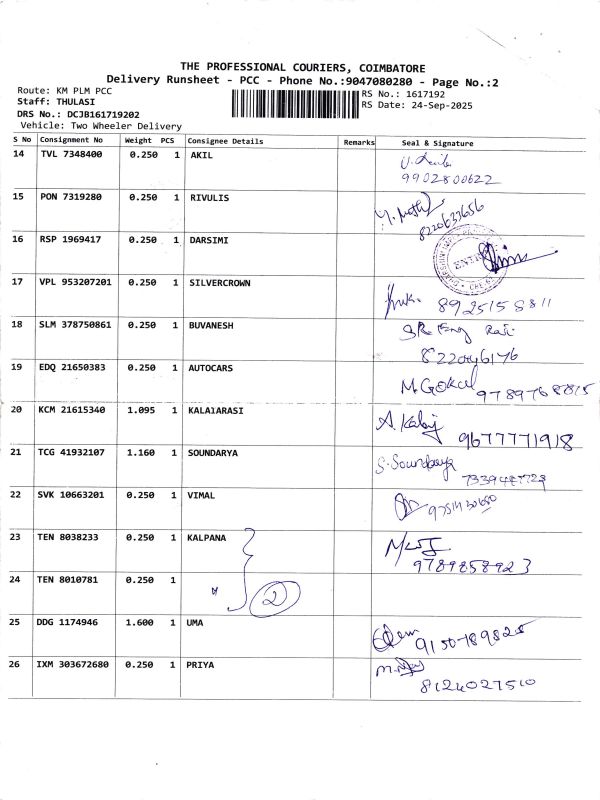 THE PROFESSIONAL COURIERS, COIMBATORE
Delivery Runsheet - PCC - Phone No.:9047080280 - Page No.:2
Route: KM PLM PCC
RS No.: 1617192
Staff: THULASI
RS Date: 24-Sep-2025
DRS No.: DCJB161719202
Vehicle: Two Wheeler Delivery
S No Consignment No Weight PCS Consignee Details Remarks Seal & Signature
14 TVL 7348400 0.250 1 AKIL
9902800622
15 PON 7319280 0.250 1 RIVULIS
8220633656
16 RSP 1969417 0.250 1 DARSIMI
17 VPL 953207201 0.250 1 SILVERCROWN
8925158811
18 SLM 378750861 0.250 1 BUVANESH
19 EDQ 21650383 0.250 1 AUTOCARS
M.Gokul 9789768815
20 KCM 21615340 1.095 1 KALAlARASI
9677771918
21 TCG 41932107 1.160 1 SOUNDARYA
S.Soundarya
22 SVK 10663201 0.250 1 VIMAL
23 TEN 8038233 0.250 1 KALPANA
9789858923
24 TEN 8010781 0.250 1
2
25 DDG 1174946 1.600 1 UMA
9150789825
26 IXM 303672680 0.250 1 PRIYA
8124027510